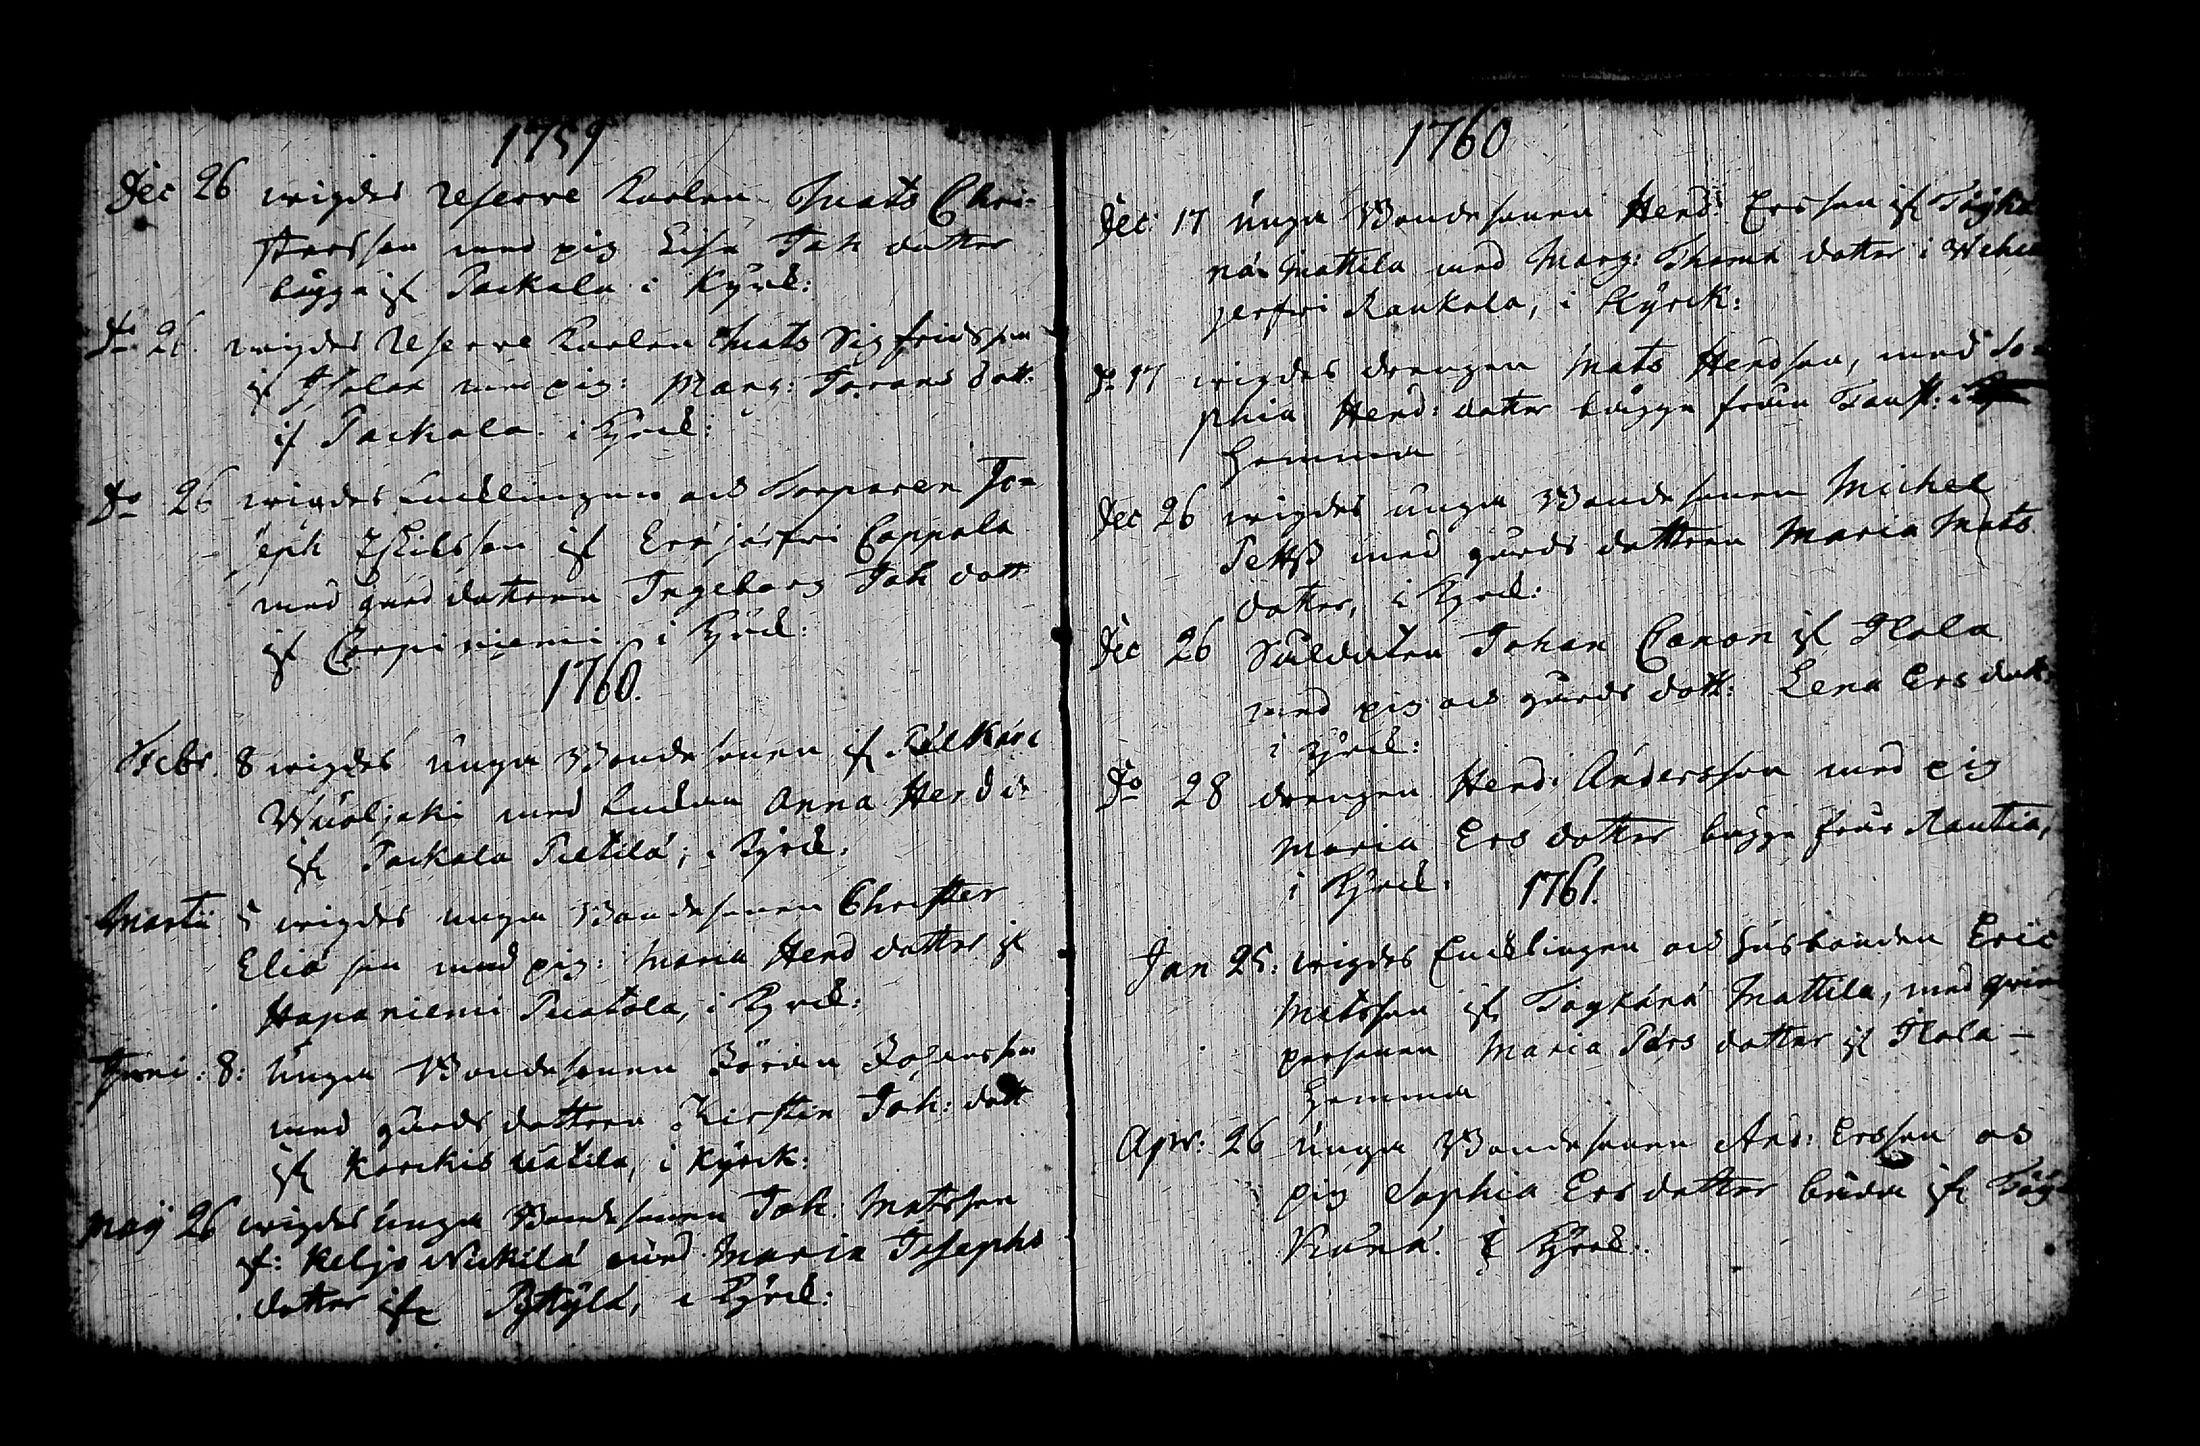 1759
Dec 26 wigdes Reserve Karlen Mats Chri-
stersson med pig Lisa Joh dotter
bägge if Packala i Kyrck:
Do 26. wigdes Reserve Karlen Mats Sigfridsson
if med pig: Marg: dott.
if Packala. i Kyrck:
Do 26 wigdes Enklingen och Torparen Jo=
seph Eskilsson if Eräjärfwi Cappala
med gårds dottren Ingeborg Joh dott
if Corpiniemi. i Kyrck:
1760.
Febr. 8 wigdes unga Bondesonen if Pälkäne
Wuoljoki med Enckan Anna Hend dr
if Packala Piettilä, i Kyrck.
Martii 5 wigdes unga Bondesonen Christer
Elia son med pig: Maria Hend dotter if
Haponiemi Puotola, i Kyrck:
Juni: 8: Unga Bondesonen Jöran Johansson
med gårds dottren Kirstin Joh: dott
if i Kyrck:
Maij 26 wigdes unga Bondesonen Joh. Matsson
if: Keljo Nickilä med Maria Josephs
dotter if Pyttylä, i Kyrck:
1760
Dec: 17 Unga Bondesonen Hend: Ersson if Togka
nä Mattila med Marg: Thoma dotter i
jerfwi Raukola, i Kyrck:
Do 17 wigdes drengen Mats Hendson, med So=
phia Hend: dotter bägge från
hemma
Dec 26 wigdes unga Bondesonen Michel
Pettß med gårds dottren Maria Mats
dotter, i Kyrck:
Dec 26 Soldaten Johan Canon if Ilola
med pig och gårds dott: Lena Ers dott.
i Kyrck:
Do 28 drengen Hend: Andersson med pig
Maria Ers dotter bägge från Rautia,
i Kyrck.
1761.
Jan 25: wigdes Enklingen och husbonden Eric
Matsson if Togkänä Mattila, med qwins
personen Maria Pärs dotter if Ilola -
hemma
Apr: 26 Unga Bondesonen And: Ersson och
pig Sophia Ers dotter båda if Tög-
känä. i Kyrck: